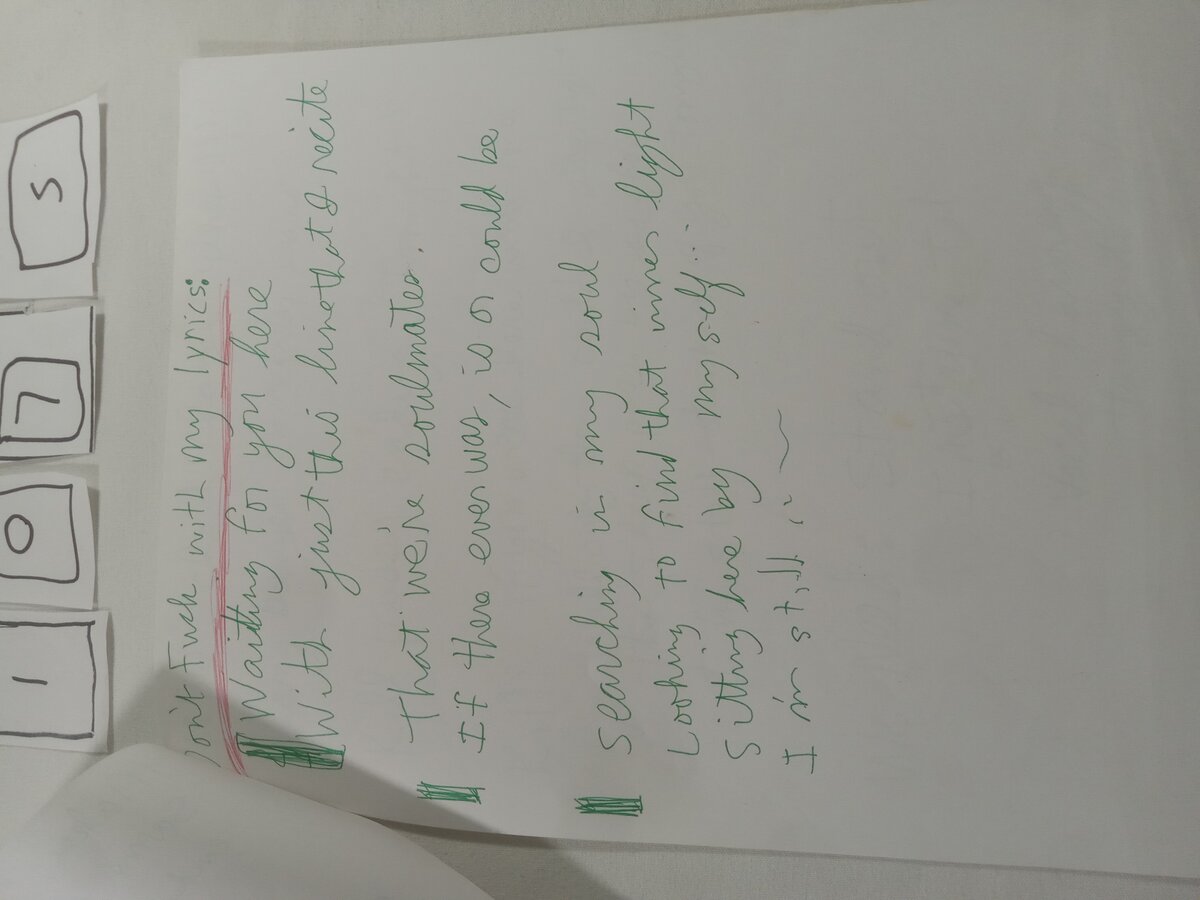 1 0 7 5
Don't Fuck with my lyrics:
Waiting for you here
With just this line that I recite
That we're soulmates.
If there ever was, is or could be
Searching in my soul
Looking to find that inner light
Sitting here by myself...
I'm still